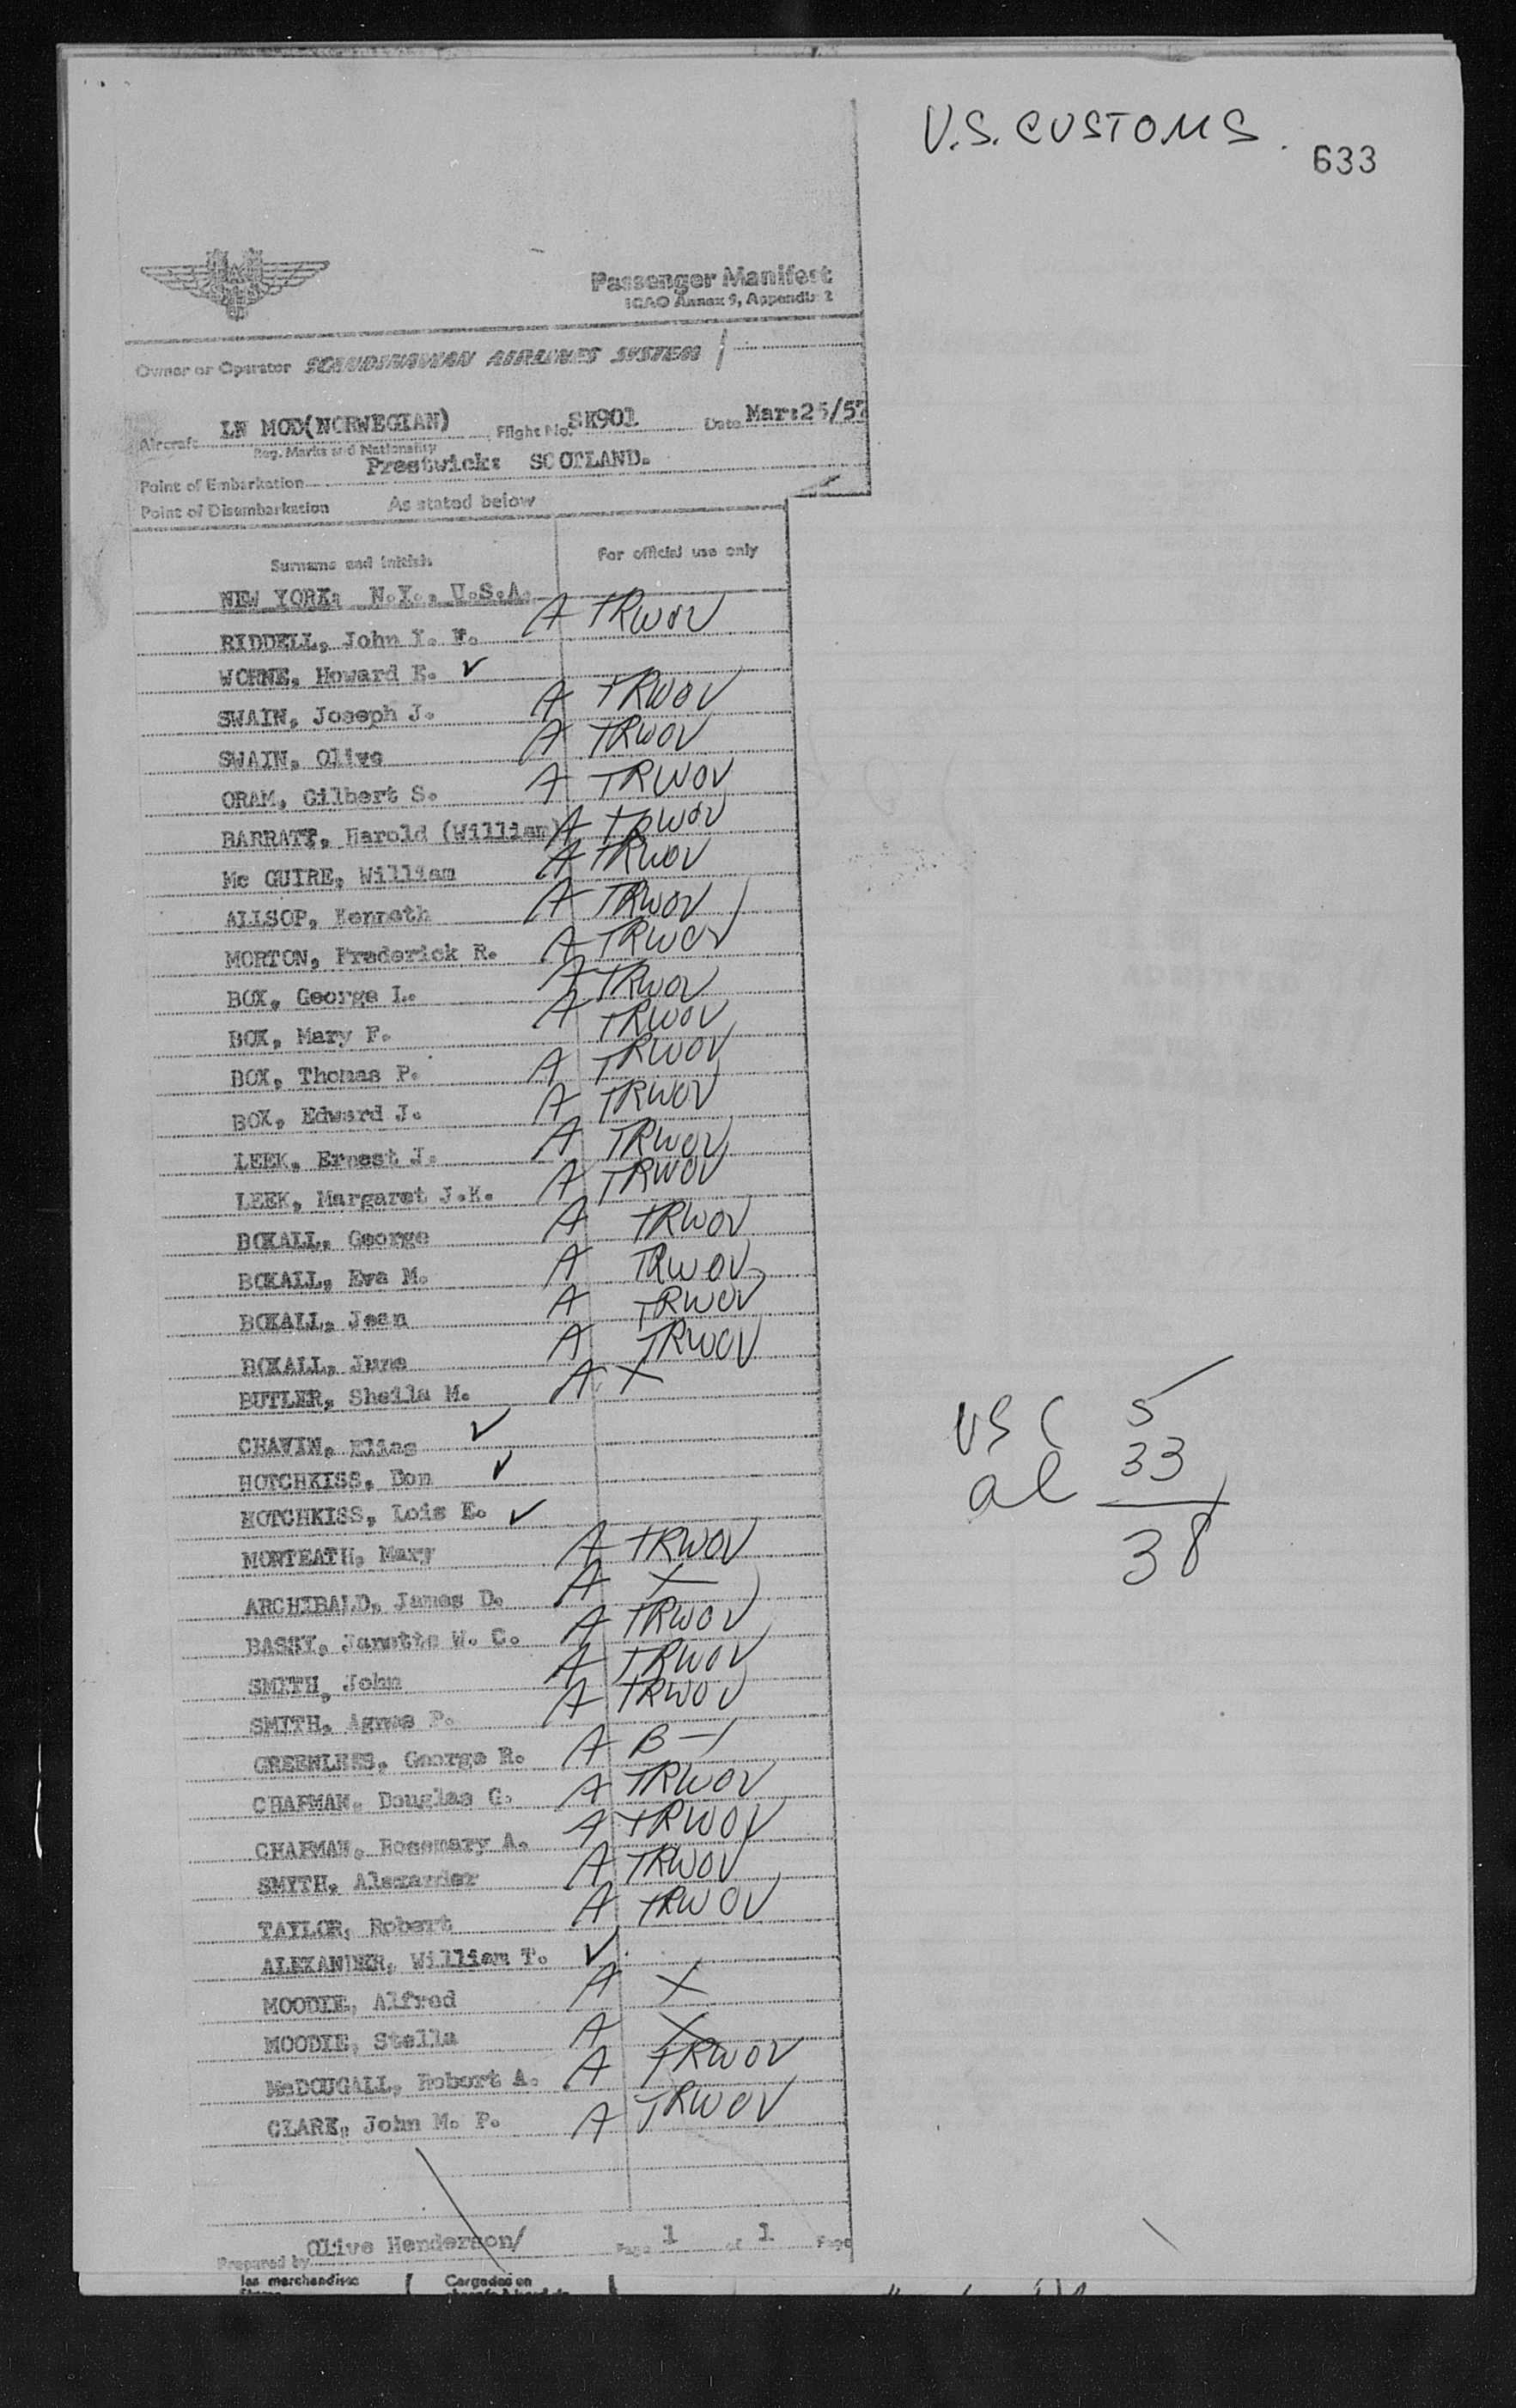 U.S. CUSTOMS.
633
Passenger Manifest
ICAO Annex 9, Appendix 2
Owner or Operator SCANDINAVIAN AIRLINES SYSTEM
Aircraft LN MOD(NORWEGIAN) Flight No. SK901 Date Mar:25/57
Reg. Marks and Nationality
Point of Embarkation Prestwick: SCOTLAND.
Point of Disembarkation As stated below
Surname and initials For official use only
NEW YORK: N.Y., U.S.A.
RIDDELL, John Y. F. A TRWOV
WORNE, Howard E. ✓
SWAIN, Joseph J. A TRWOV
SWAIN, Olive A TRWOV
ORAM, Gilbert S. A TRWOV
BARRATT, Harold (William) A TRWOV
Mc GUIRE, William A TRWOV
ALLSOP, Kenneth A TRWOV
MORTON, Frederick R. A TRWOV
BOX, George L. A TRWOV
BOX, Mary F. A TRWOV
BOX, Thomas P. A TRWOV
BOX, Edward J. A TRWOV
LEEK, Ernest J. A TRWOV
LEEK, Margaret J.K. A TRWOV
BOXALL, George A TRWOV
BOXALL, Eva M. A TRWOV
BOXALL, Jean A TRWOV
BOXALL, June A TRWOV
BUTLER, Sheila M. A X
CHAVIN, Elias ✓
HOTCHKISS, Don ✓
HOTCHKISS, Lois E. ✓
MONTEATH, Mary A TRWOV
ARCHIBALD, James D. A X
BASSY, Janette W. C. A TRWOV
SMITH, John A TRWOV
SMITH, Agnes P. A TRWOV
GREENLEES, George R. A B-1
CHAPMAN, Douglas G. A TRWOV
CHAPMAN, Rosemary A. A TRWOV
SMITH, Alexander A TRWOV
TAYLOR, Robert A TRWOV
ALEXANDER, William T. ✓
MOODIE, Alfred A X
MOODIE, Stella A X
McDOUGALL, Robert A. A TRWOV
CLARK, John M. P. A TRWOV
USC 5
al 33
38
Prepared by Olive Henderson/ Page 1 of 1 Page
las merchandise Cargades en